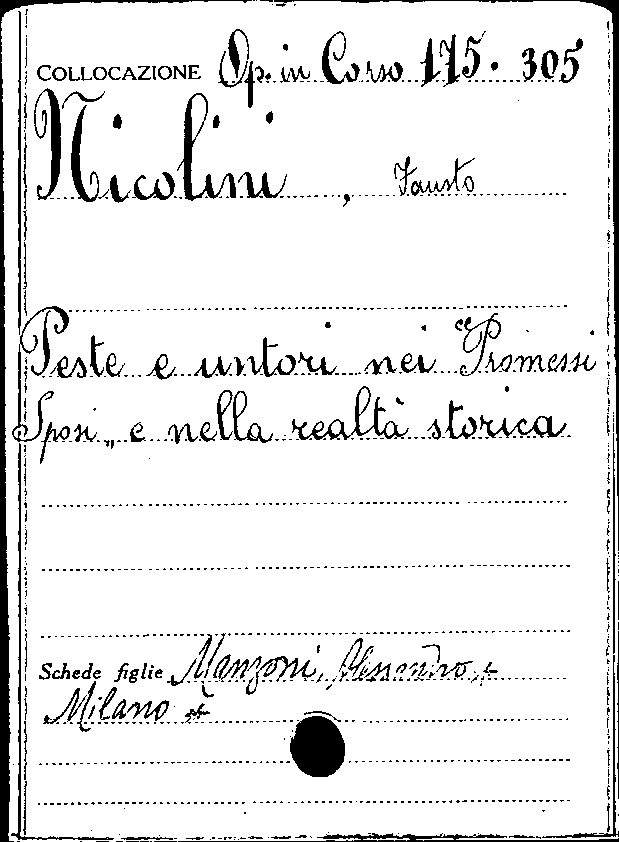 COLLOCAZIONE Op. in Corso 175. 305
Nicolini, Fausto
Peste e untori nei “Promessi
Sposi„ e nella realtà storica
Schede figlie Manzoni, Alessandro +
Milano +